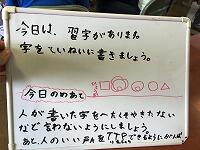 今日は、習字がありまた
字をていねいに書きましょう。
今日のめあて
人が書いた字をへたくそやきたない
などを言わないようにしましょう。
あと、人のいい所をTTPできるように